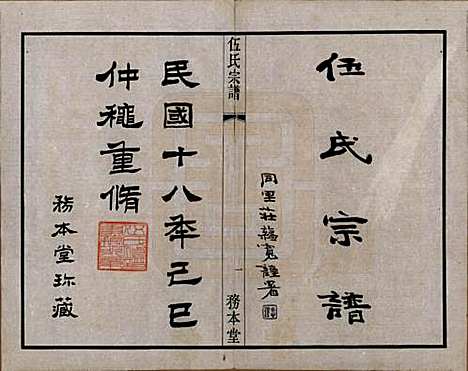 伍氏宗譜
同里莊蘊寬謹署
伍氏宗譜
一
務本堂
民國十八年己巳
仲穐重脩
務本堂珍藏